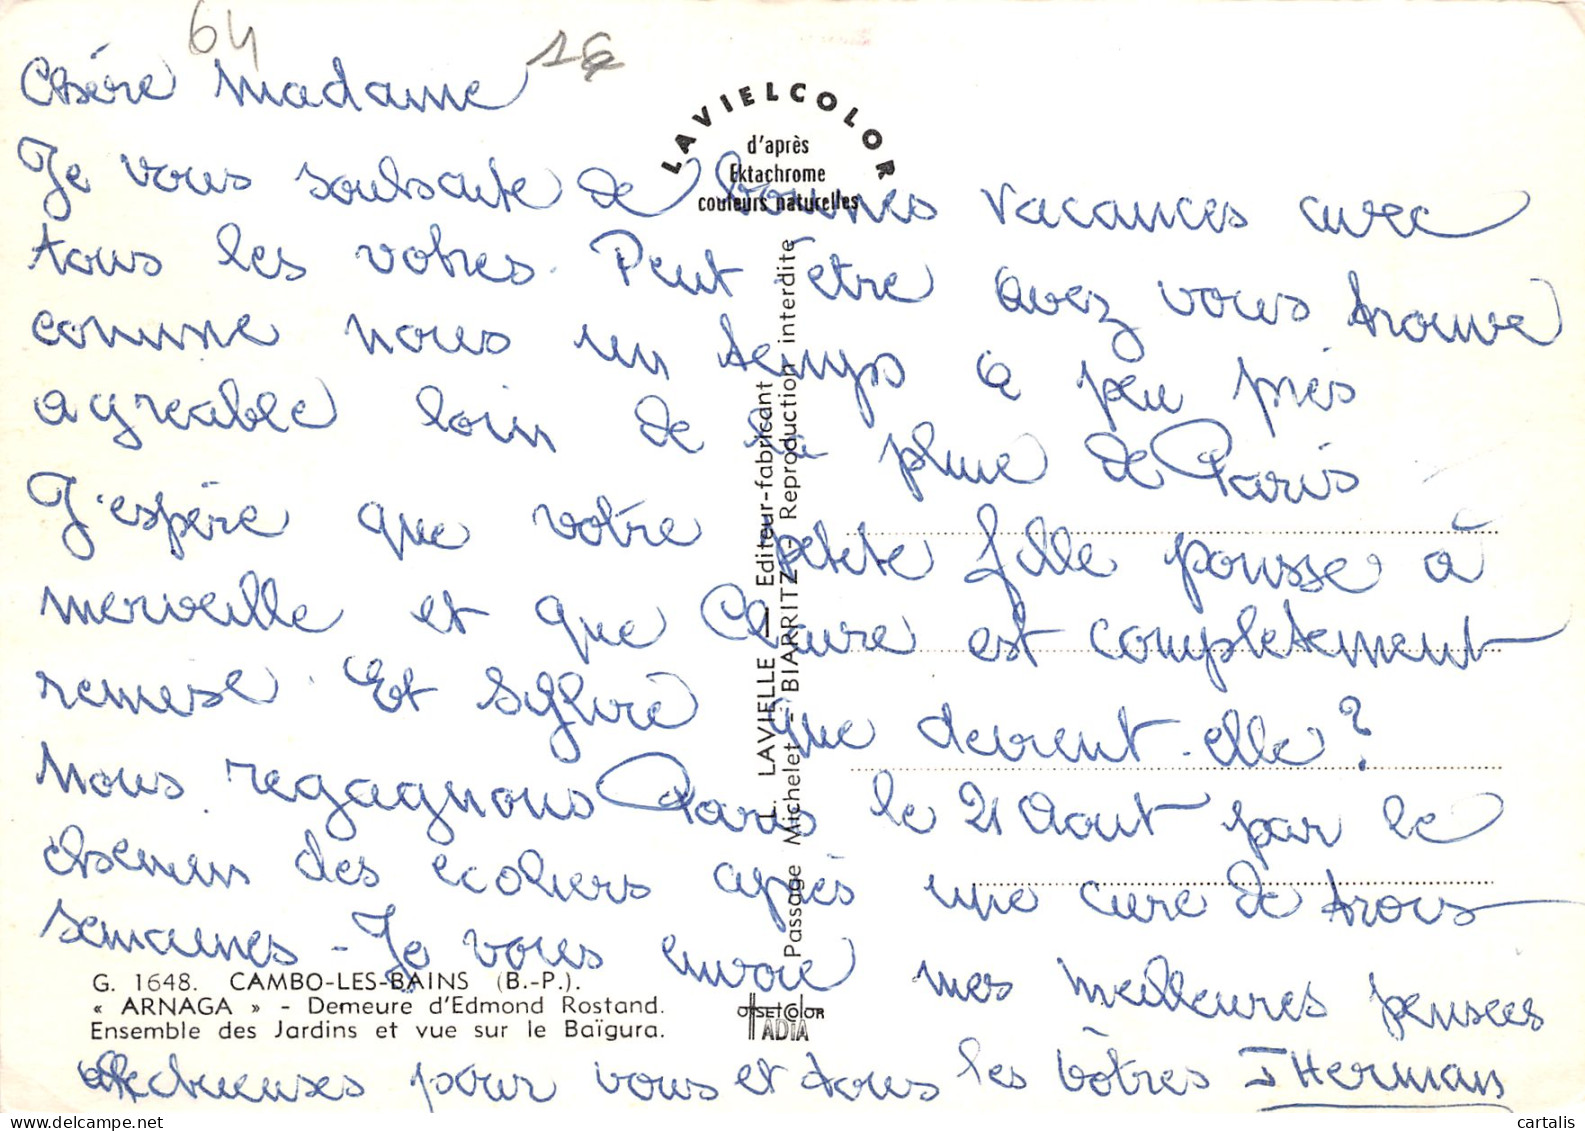 64
Chère Madame
LAVIELCOLOR
d'après
Ektachrome
couleurs naturelles
Je vous souhaite de bonnes vacances avec
tous les votres. Peut être avez vous trouvé
comme nous un temps à peu près
agréable loin de la pluie de Paris
J'espère que votre petite fille pousse à
merveille et que Claire est completement
remise. Et Sylvie que devient-elle?
Nous regagnons Paris le 21 Aout par le
chemin des ecoliers après une cure de trois
semaines - Je vous envoie mes meilleures pensees
affectueuses pour vous et tous les vôtres J Herman
L. LAVIELLE - Editeur-fabricant
Passage Michelet - BIARRITZ - Reproduction interdite
G. 1648. CAMBO-LES-BAINS (B.-P.).
« ARNAGA » - Demeure d'Edmond Rostand.
Ensemble des Jardins et vue sur le Baïgura.
OffSETCOLOR
IADIA
cartalis